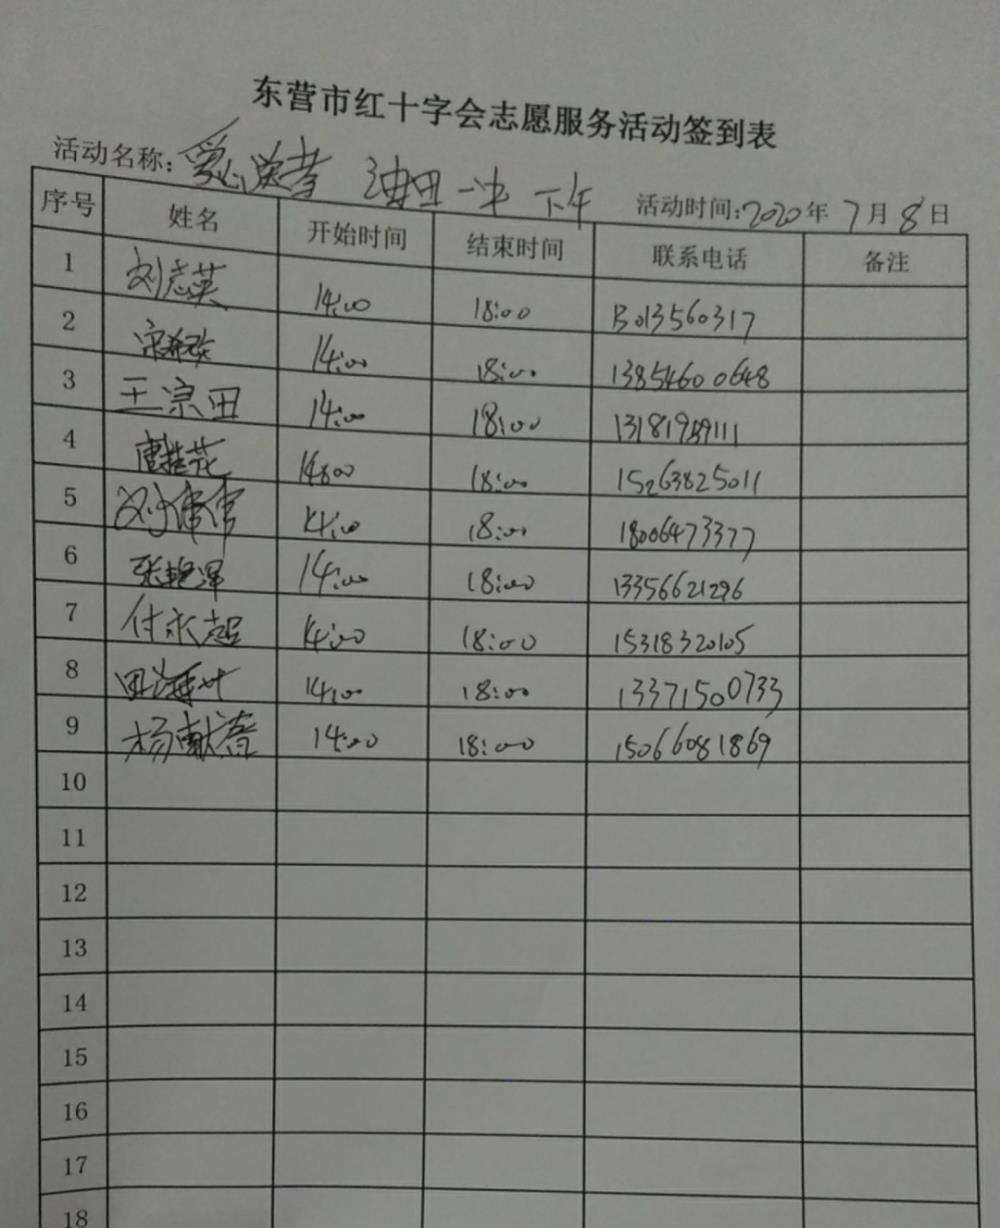 东营市红十字会志愿服务活动签到表
活动名称：爱心送考 油田一中 下午 活动时间：2020年7月8日
序号 姓名 开始时间 结束时间 联系电话 备注
1 刘志英 14:00 18:00 13013560317
2 14:00 18:00 13854600648
3 王宗田 14:00 18:00
4 唐桂花 14:00 18:00 15263825011
5 14:00 18:00 18006473377
6 14:00 18:00 13356621296
7 付永超 14:00 18:00 15318320105
8 14:00 18:00 13371500733
9 杨献春 14:00 18:00 15066081869
10
11
12
13
14
15
16
17
18